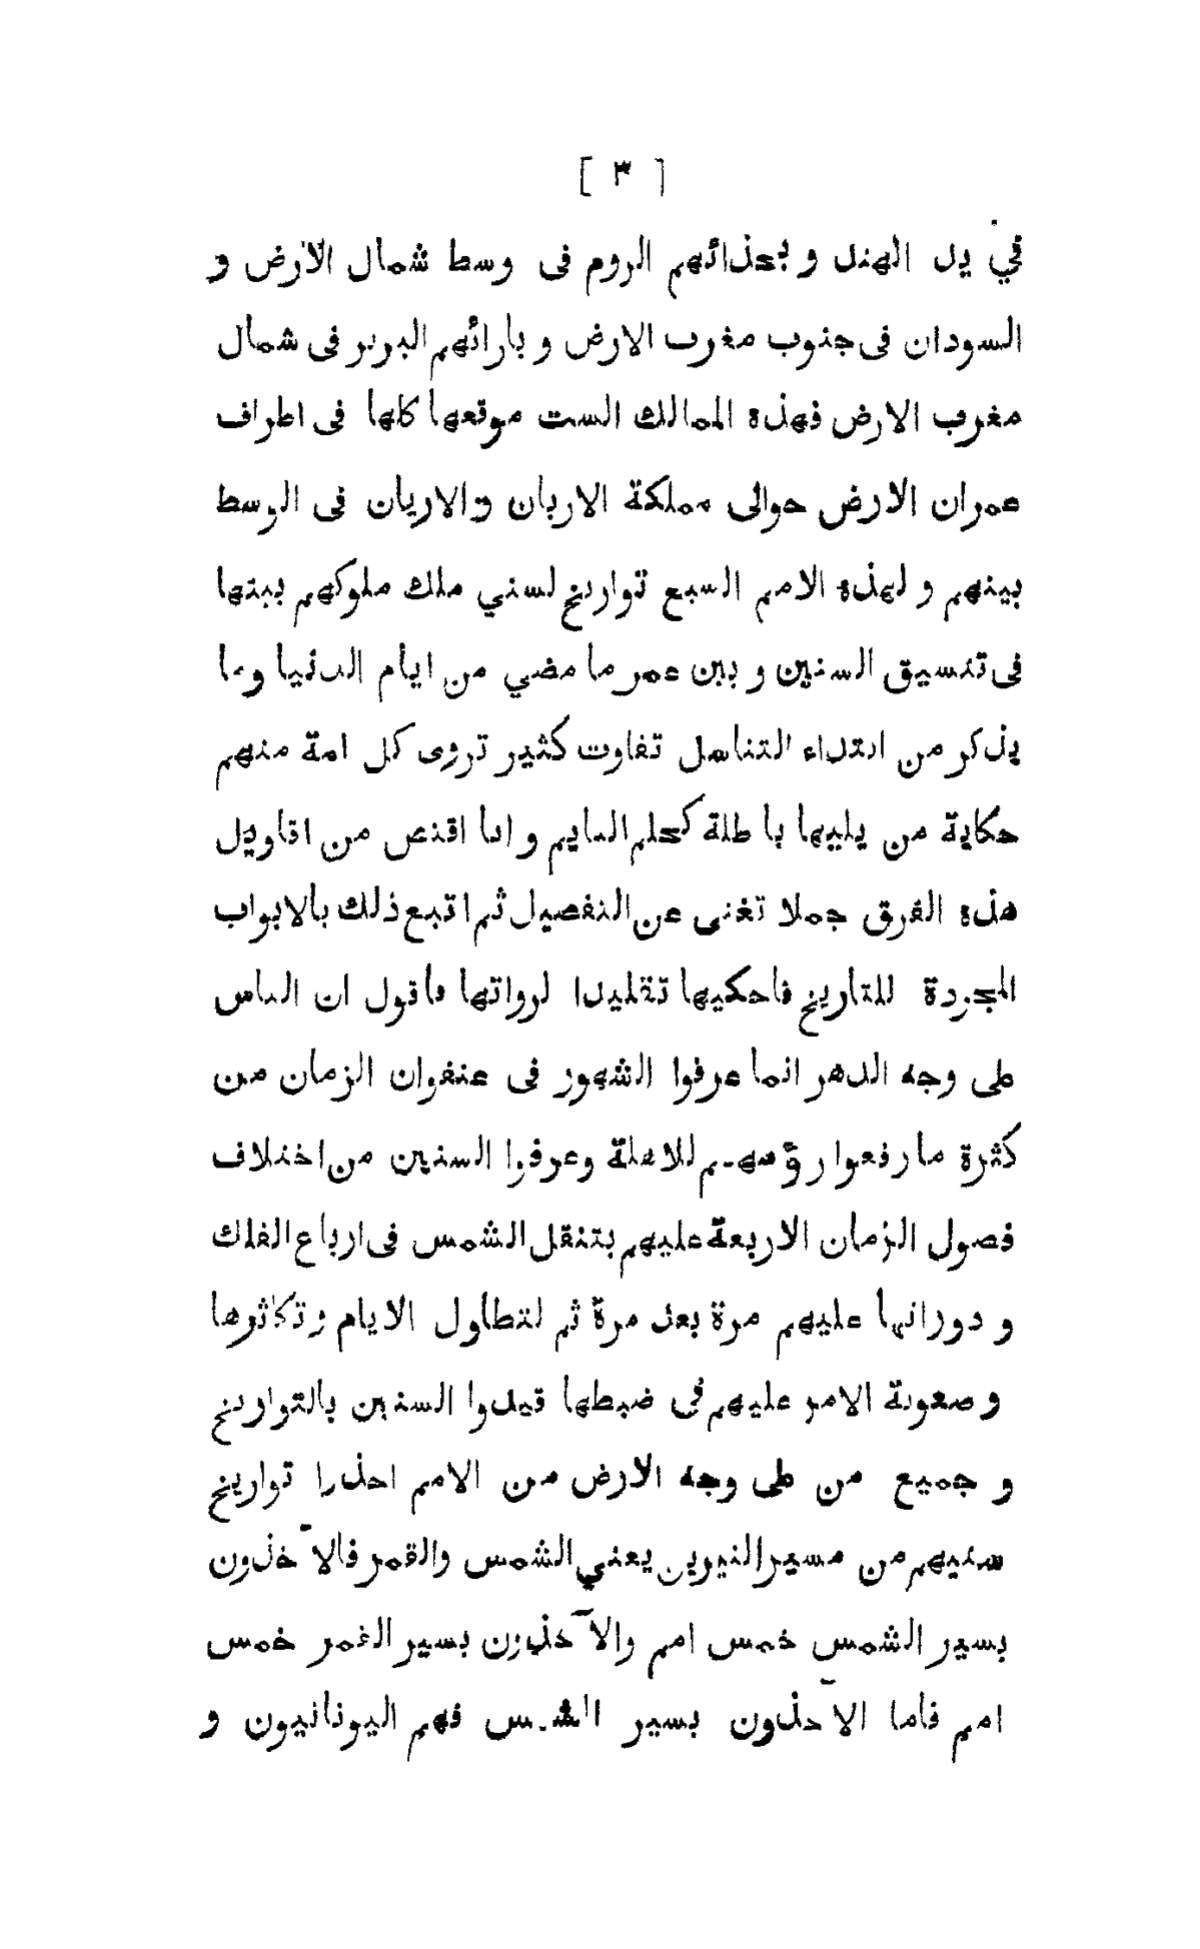 [ ٣ ]
في يد الهند و بحذائهم الروم فى وسط شمال الارض و
السودان فى جنوب مغرب الارض و بازائهم البربر فى شمال
مغرب الارض فهذه الممالك الست موقعها كلها فى اطراف
عمران الارض حوالى مملكة الاربان والاريان فى الوسط
بينهم و لهذه الامم السبع تواريخ لسني ملك ملوكهم ببتها
فى تنسيق السنين و بين عمر ما مضي من ايام الدنيا وما
يذكر من ابتداء التناسل تفاوت كثير تروى كل امة منهم
حكاية من يليها باطلة كحلم النايم و انا اقتص من اقاويل
هذه الفرق جملا تغنى عن التفصيل ثم اتبع ذلك بالابواب
المجردة للتاريخ فاحكيها تقليدا لرواتها فاقول ان الناس
على وجه الدهر انما عرفوا الشهور فى عنفوان الزمان من
كثرة ما رفعوا رؤسهم للاهلة وعرفوا السنين من اختلاف
فصول الزمان الاربعة عليهم بتنقل الشمس فى ارباع الفلك
و دورانها عليهم مرة بعد مرة ثم لتطاول الايام وتكاثرها
و صعوبة الامر عليهم فى ضبطها قيدوا السنين بالتواريخ
و جميع من على وجه الارض من الامم اخذوا تواريخ
سنيهم من مسير النيرين يعني الشمس والقمر فالآخذون
بسير الشمس خمس امم والآخذون بسير القمر خمس
امم فاما الآخذون بسير الشمس فهم اليونانيون و